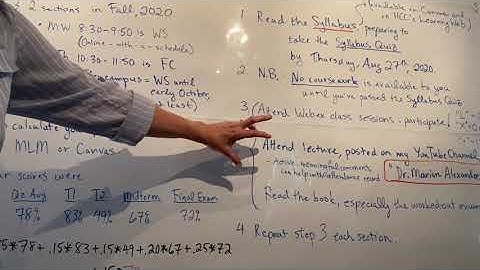 2 sections in Fall, 2020
• MW 8:30-9:50 is WS
(Online-with-a-schedule)
Th 10:30-11:50 is FC
campus = WS until
early October,
least)
calculate
MLM or Canvas
scores were
Qz Avg T1 T2 Midterm Final Exam
78% 83% 49% 67% 72%
.15*78+.15*83+.15*49+.20*67+.25*72
(Available in Canvas and
in HCC's Learning Web)
1. Read the Syllabus, preparing to
take the Syllabus Quiz
by Thursday, Aug 27th, 2020.
2. N.B. No coursework is available to you
until you've passed the Syllabus Quiz
3. Attend Webex class sessions - participate
Attend lecture, posted on my YouTube Channel
- Active, meaningful comments
can help with attendance record
"Dr. Marian Alexander
Read the book, especially the worked-out
4. Repeat step 3 each section.